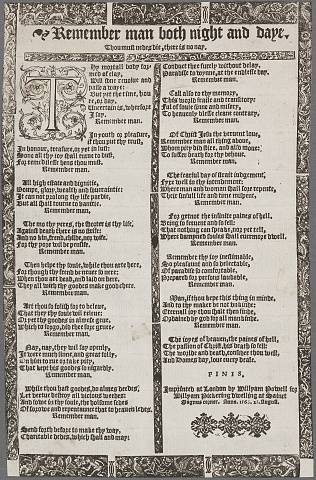 Remember man both night and daye,
Thou must nedes die, there is no nay.
Thy mortall body formed of clay,
Will sone resolve and passe away:
But yet the time, houre, or day,
Uncertain is, wherefore I say,
Remember man.
In youth or pleasure, if thou put thy trust,
In honour, treasure, or yet in lust:
Sone all thy ioy shall tourne to dust,
For nedes thou must.
Remember man.
All high estate and dignitie,
Pompe, glory, wealth and
It can not prolong thy life pardie,
But all shall tourne to vanitie,
Remember man.
The mo thy yeres, the shorter is thy life,
Against death there is no strife:
And no kin, frend, childe, nor wife,
For thy pope wil be
Remember man.
Then helpe thy soule, while thou arte here,
For though thy frend be never so neer:
When thou art dead, and laid on bere,
They all with thy goodes make good chere.
Remember man.
Art thou so faithfull for to beleve,
That they thy soule will releve:
Or yet thy goodes in almose geve,
Which to forgo, did thee sore greve:
Remember man.
Nay, nay, they will say openly,
It were much sinne, and great folly,
On him to rue or take pity,
That kept his goodes so nigardly.
Remember man.
While thou hast goodes, do almes dedes,
Let vertue destroy all vicious weedes:
And sowe in thy soule, the holesome sedes
Of sorow and repentaunce that to heaven ledes.
Remember man.
Send forth before to make thy way,
Charitable dedes, which shall and may:
Conduct thee surely without delay,
Paradise to wynne, at the endlesse day.
Remember man.
Call also to thy memory,
This world fraile and transitory:
Ful of soule sinne and misery,
To heavenly blisse cleane contrary,
Remember man.
Of Christ Jesu the fervent love,
Remember man all thing above,
Whom pity did bise, and also move:
To suffer death for thy behove.
Remember man.
The fearful day of strait iudgement,
Fyre wel in thy intendement:
Where man and woman shall sore repente,
Their sinfull life and time mispent.
Remember man.
For getnot the infinite paines of hell,
Being so fervent and so fell:
That nothing can speake, nor yet tell,
Where damned soules shall evermore dwell.
Remember man.
Remember the ioy inestimable,
So pleasaunt and so delectable,
Of paradise so comfortable,
Prepared for persons laudable,
Remember man.
Man, if thou kepe this thing in minde,
And to thy maker be not unkinde:
Eternall ioy thou shalt then finde,
Ordained by god for all mankinde.
Remember man.
The ioyes of heaven, the paines of hell,
The passion of Christ, his death so fell:
The worlde and death, consider them well,
And Domes day, loue every deale.
FINIS,
Imprinted at London by Willyam Powell for
Willyam Pickering dwelling at Sainct
Magnus corner. Anno. 21. August.